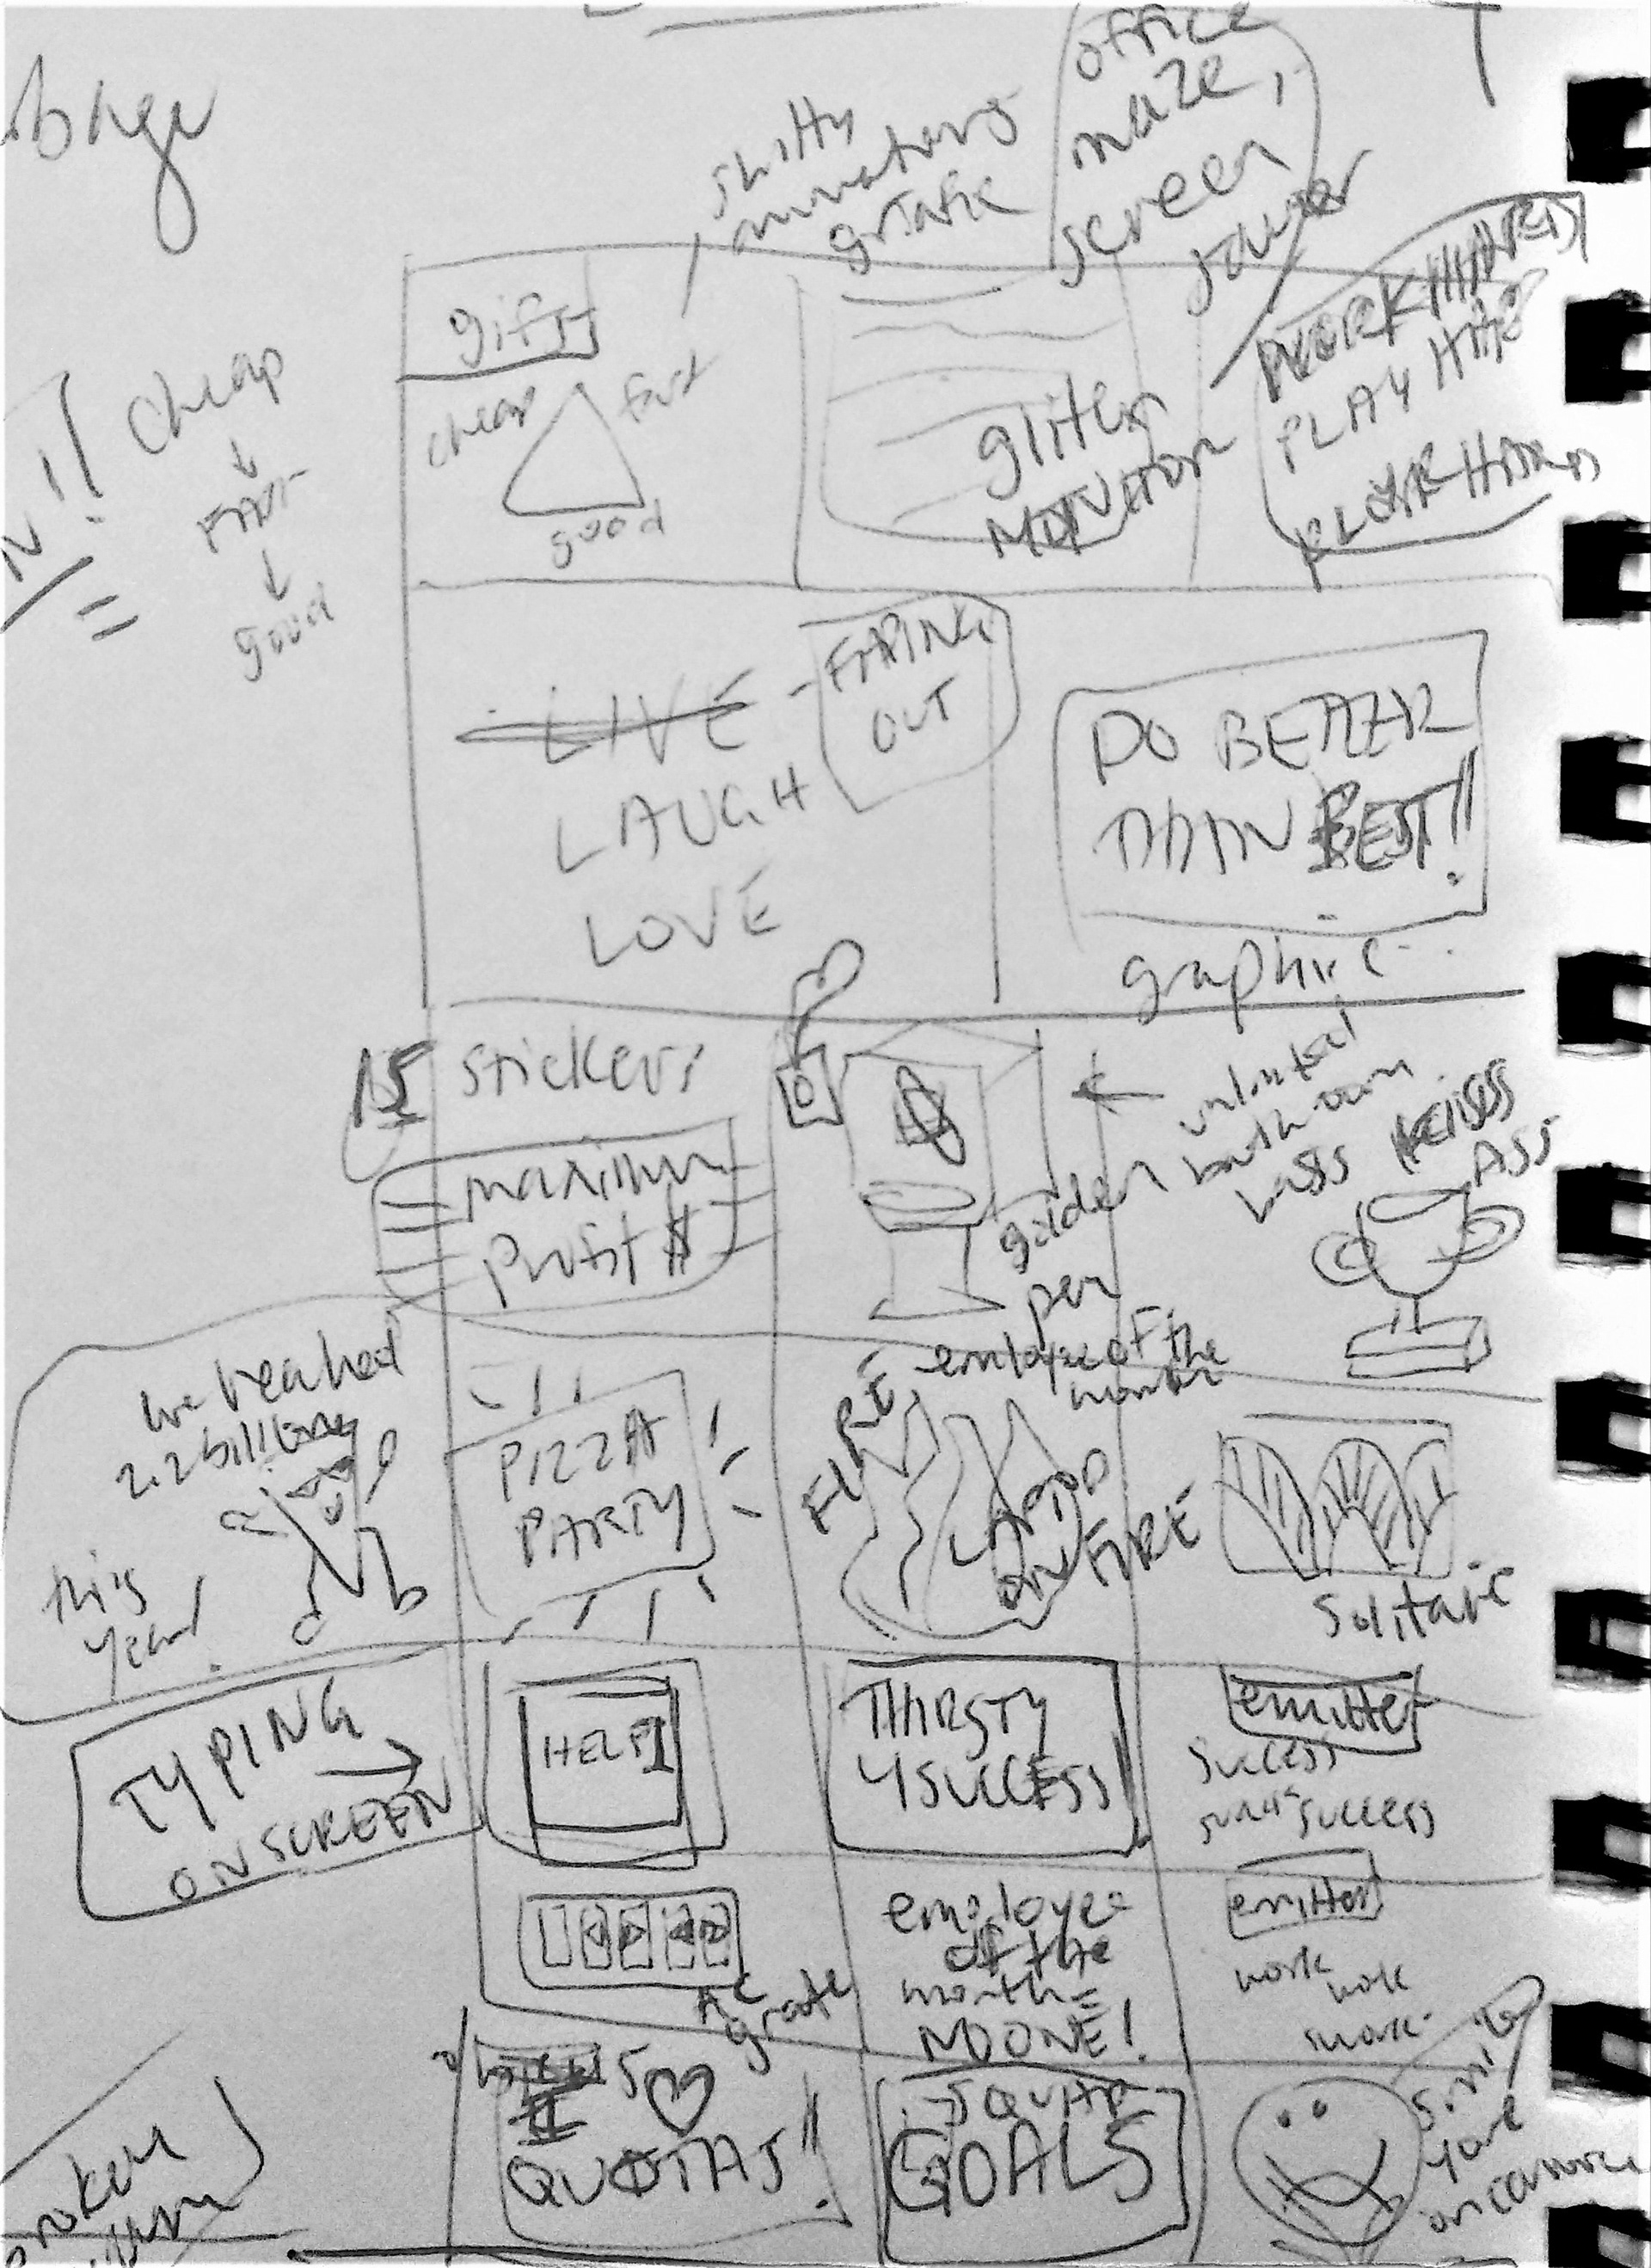 office
maze,
screen
shitty
gifs
cheap
fast
good
cheap
↓
FAST
↓
good
glitter
WORK HARD
PLAY HARD
LIVE
LAUGH
LOVE
FADING
OUT
DO BETTER
THAN BEST!!
graphic
15
stickers
maximum
profit $
golden
bathroom
pass
per
employee of the
month
we reached
2.2 billion
this
year!
PIZZA
PARTY
FIRE
LAPTOP
ON FIRE
Solitaire
TYPING
→
ON SCREEN
HELP!
THIRSTY
4 SUCCESS
emitter
success
success
employee
of the
month =
NO ONE!
emitter
work
work
I ♡
QUOTAS!!
SQUAD
GOALS
smile
you're
on camera
broken